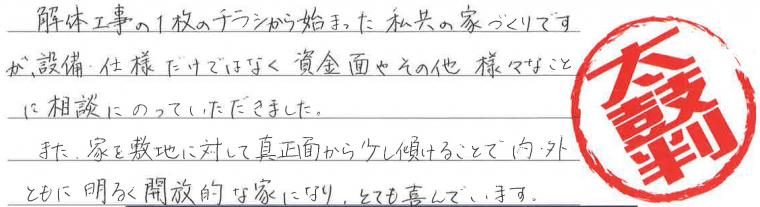 解体工事の1枚のチラシから始まった私共の家づくりです
が、設備・仕様だけではなく資金面やその他様々なこと
に相談にのっていただきました。
また、家を敷地に対して真正面から少し傾けることで内・外
ともに明るく開放的な家になり、とても喜んでいます。
太鼓判